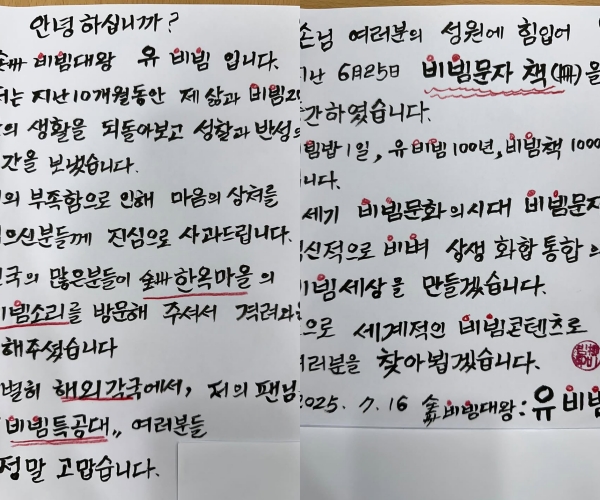 안녕하십니까?
비빔대왕 유비빔 입니다.
저는 지난10개월동안 제 삶과 비빔20
의 생활을 되돌아보고 성찰과 반성의
간을 보냈습니다.
의 부족함으로 인해 마음의 상처를
으신분들께 진심으로 사과드립니다.
국의 많은분들이 한옥마을의
비빔소리를 방문해 주셔서 격려와
해주셨습니다
별히 해외각국에서, 저의 팬님
비빔특공대,, 여러분들
정말 고맙습니다.
손님 여러분의 성원에 힘입어
지난 6月25日 비빔문자 책(冊)을
간하였습니다.
빔밥1일, 유비빔100년, 비빔책1000
니다.
세기 비빔문화의시대 비빔문자
신적으로 비벼 상생 화합 통합의
비빔세상을 만들겠습니다.
으로 세계적인 비빔콘텐츠로
여러분을 찾아뵙겠습니다.
2025. 7. 16 비빔대왕: 유비빔